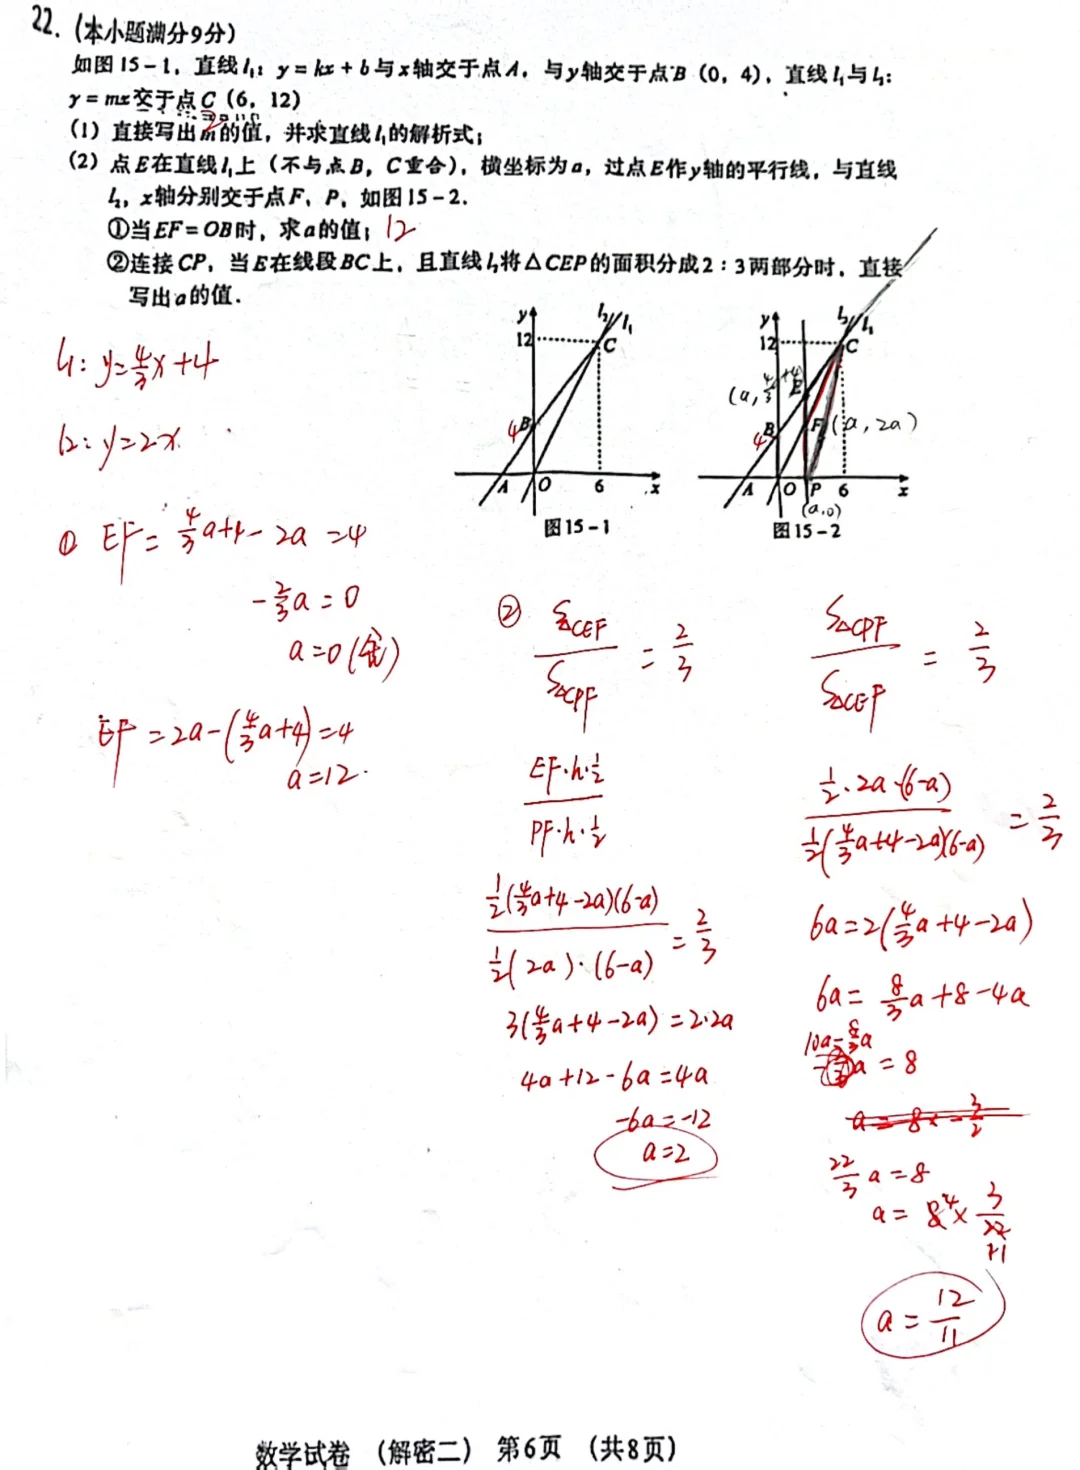 22. (本小题满分9分)
如图15-1，直线l₁：y=kx+b与x轴交于点A，与y轴交于点B（0，4），直线l₁与l₂：
y=mx交于点C（6，12）
2
(1) 直接写出m的值，并求直线l₁的解析式；
(2) 点E在直线l₁上（不与点B，C重合），横坐标为a，过点E作y轴的平行线，与直线
l₂，x轴分别交于点F、P，如图15-2．
①当EF=OB时，求a的值； 12
②连接CP，当E在线段BC上，且直线l₂将△CEP的面积分成2：3两部分时，直接
写出a的值．
y l₂ l₁
12 C
4 B
A O 6 x
图15-1
y l₂ l₁
12 C
(a, 4/3a+4) E
4 B F (a, 2a)
A O P 6 x
(a,0)
图15-2
l₁: y=4/3x+4
l₂: y=2x.
① EF=4/3a+4-2a=4
-2/3a=0
a=0(舍)
EF=2a-(4/3a+4)=4
a=12.
② S△CEF/S△CPF = 2/3
EF·h·1/2 / PF·h·1/2
1/2(4/3a+4-2a)(6-a) / 1/2(2a)·(6-a) = 2/3
3(4/3a+4-2a)=2·2a
4a+12-6a=4a
-6a=-12
a=2
S△CPF/S△CEF = 2/3
1/2·2a·(6-a) / 1/2(4/3a+4-2a)(6-a) = 2/3
6a=2(4/3a+4-2a)
6a=8/3a+8-4a
10a-8/3a
a=8
a=8×-3/2
22/3a=8
a=8 4×3/22 11
a=12/11
数学试卷 （解密二） 第6页 （共8页）